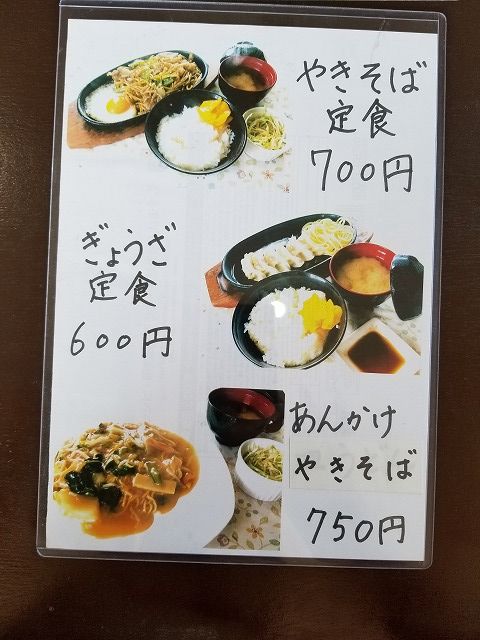 やきそば
定食
700円
ぎょうざ
定食
600円
あんかけ
やきそば
750円